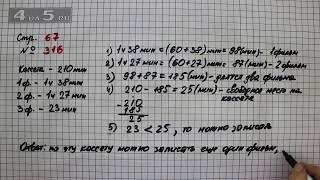 4da5.ru
Стр. 67
№ 316
Кассета - 210 мин
1ф. - 1ч 38 мин
2ф. - 1ч 27 мин
3ф. - 23 мин
1) 1ч 38 мин = (60+38) мин = 98(мин) - 1 фильм
2) 1ч 27 мин = (60+27) мин = 87(мин) - 2 фильм
3) 98+87 = 185 (мин) - длятся два фильма
4) 210 - 185 = 25 (мин) - свободное место на
кассете
-210
185
25
5) 23 < 25, то можно записать
Ответ: на эту кассету можно записать еще один фильм,